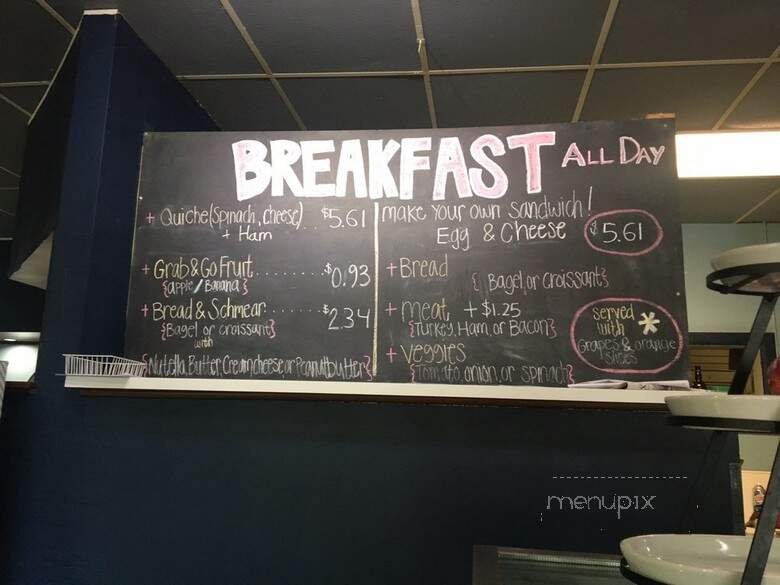 BREAKFAST ALL DAY
+ Quiche (spinach, cheese) .. $5.61
+ Ham
+ Grab & Go Fruit .......... $0.93
{apple / Banana}
+ Bread & Schmear ........ $2.34
{Bagel or croissant}
with
{Nutella, Butter, Creamcheese, or Peanutbutter}
make Your own sandwich!
Egg & Cheese $5.61
+ Bread
{Bagel, or Croissant}
+ meat, + $1.25
{Turkey, Ham, or Bacon}
+ veggies
{Tomato, onion, or spinach}
served
with *
Grapes & orange
slices
menupix